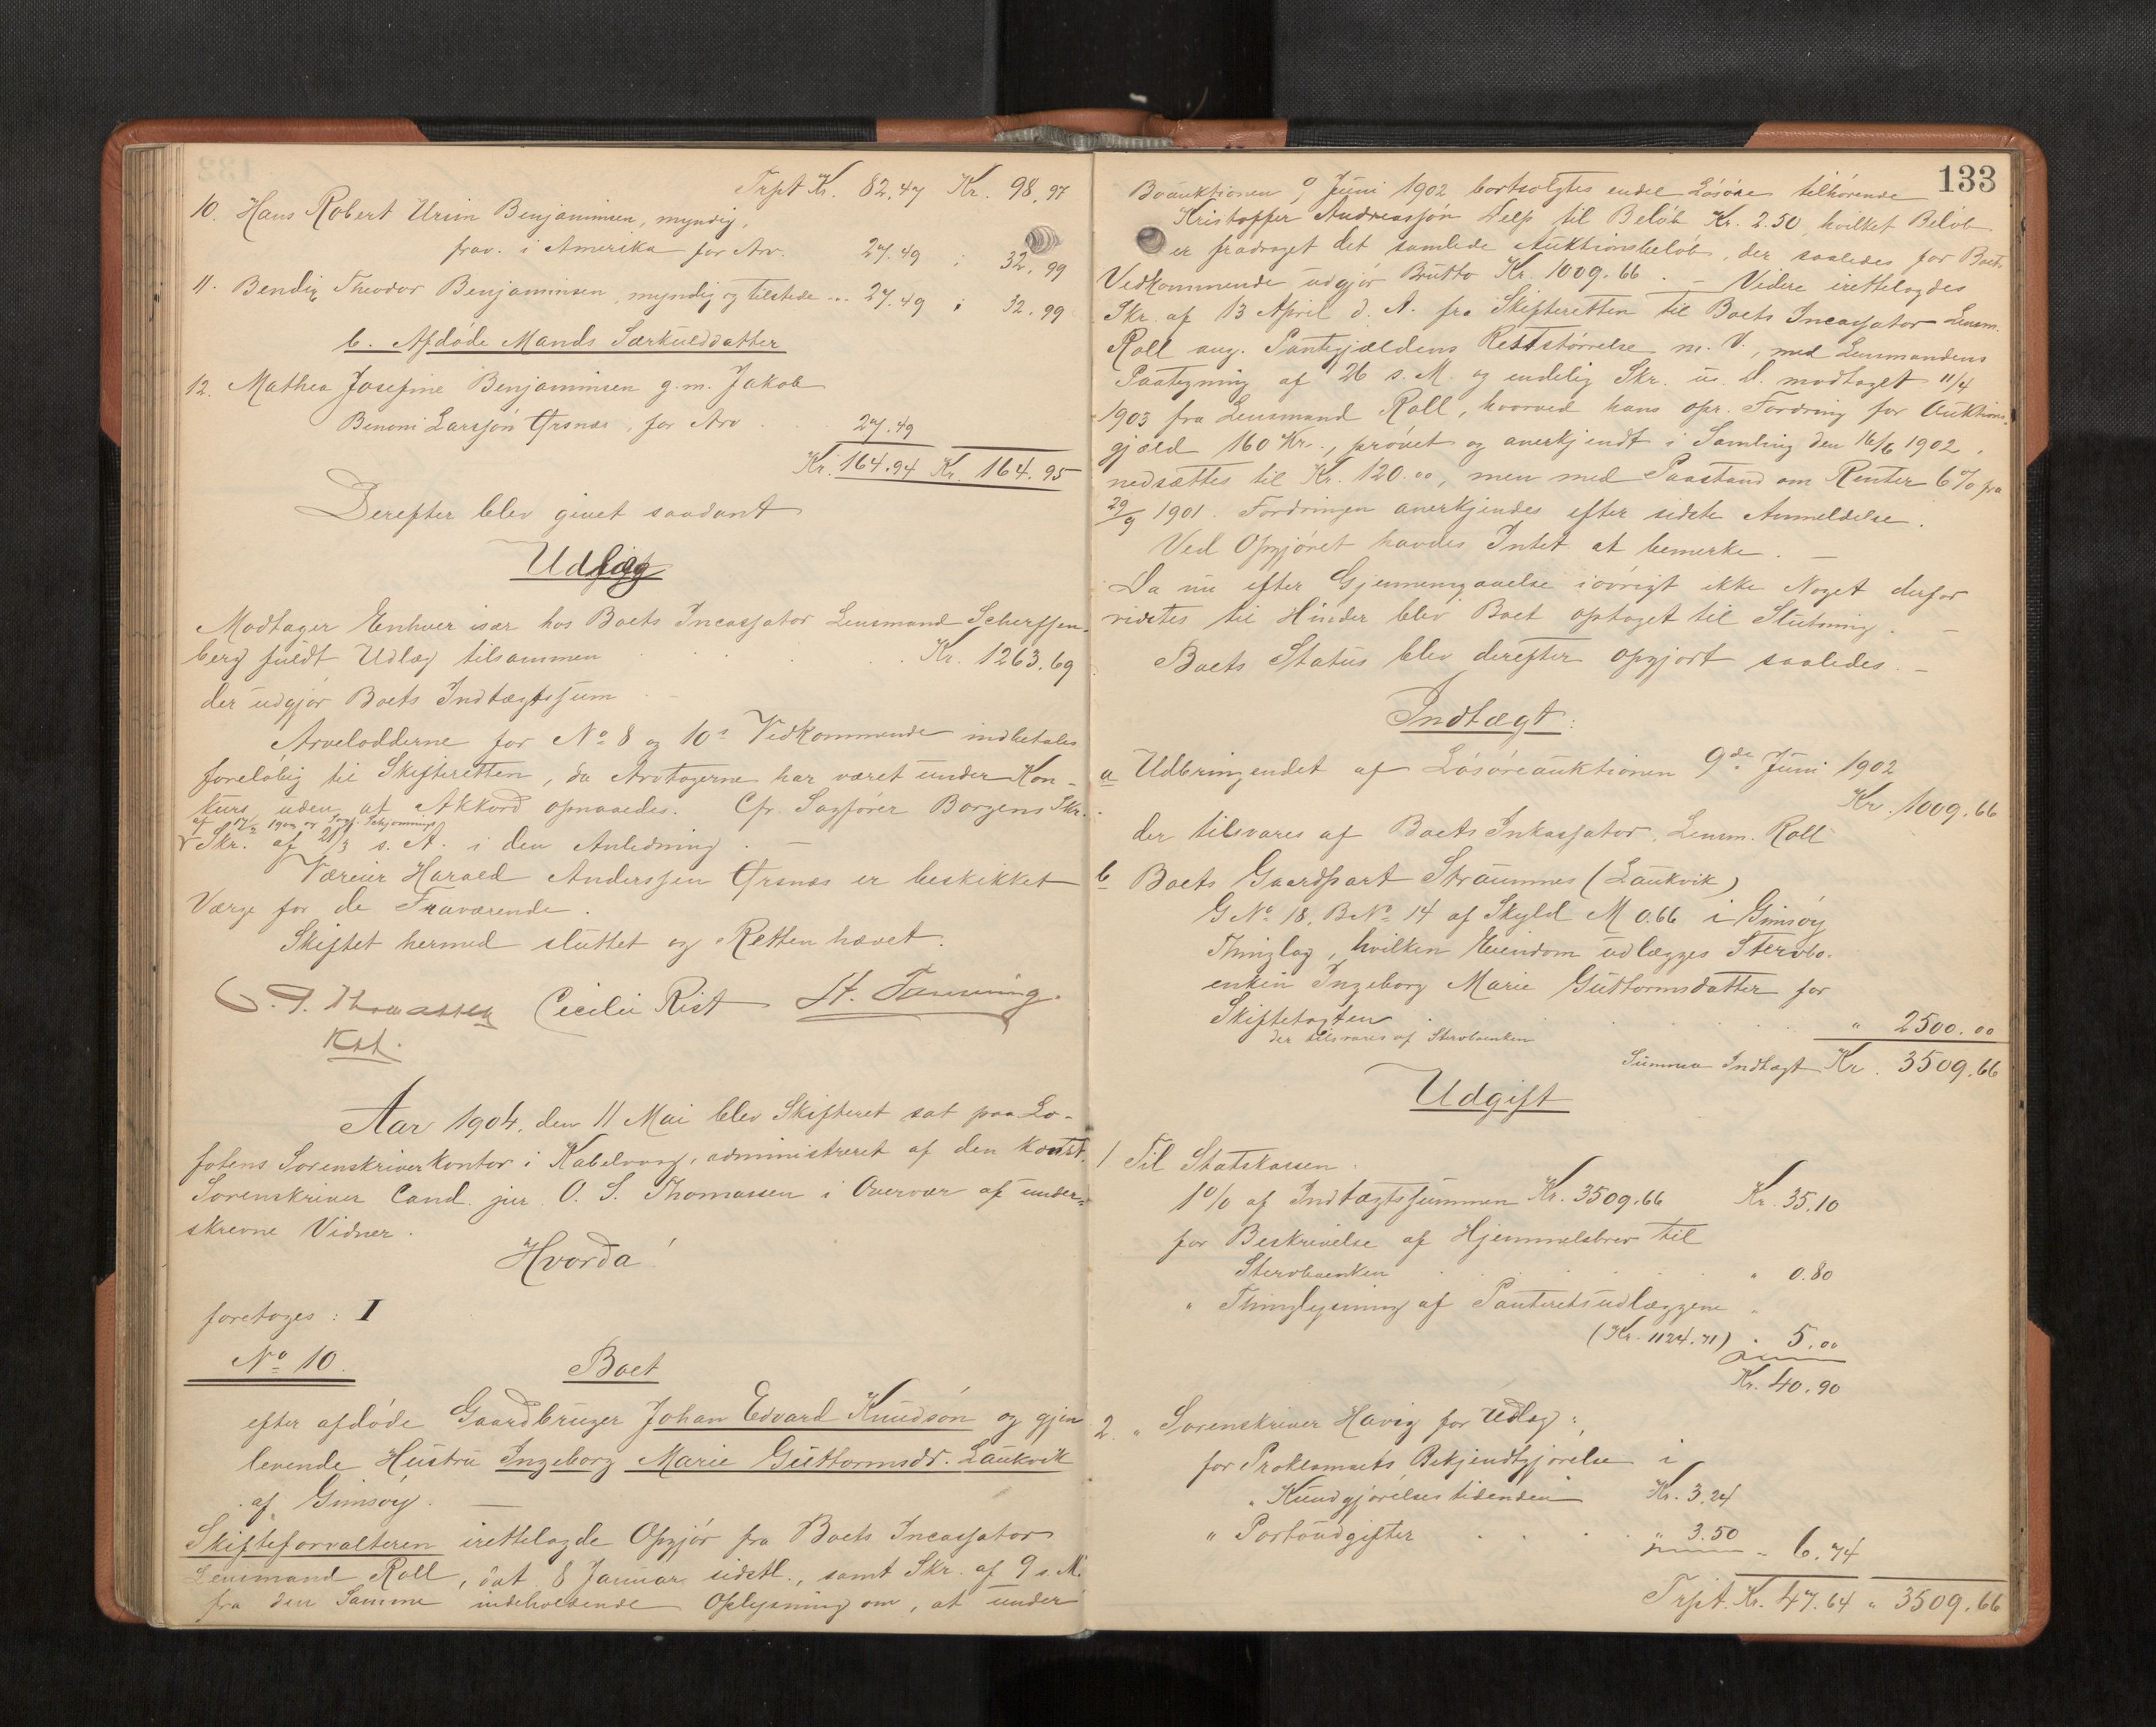 Trpt Kr. 82.47 Kr. 98.97
10. Hans Robert Ursin Benjaminsen, myndig,
frav. i Amerika for Arv. 27.49 : 32.99
11. Bendix Theodor Benjaminsen, myndig og tilstede ... 27.49 : 32.99
b. Afdøde Mands Særkulddatter
12. Mathea Josefine Benjaminsen g.m. Jakob
Benoni Larssøn Ørsnes, for Arv . . . 27.49
Kr. 164.94 Kr. 164.95
Derefter blev givet saadant
Udlæg
Modtager Enhver især hos Boets Incassator Lensmand Scherffen-
berg fuldt Udlæg tilsammen . . . . . Kr. 1263.69
der udgjør Boets Indtægtssum
Arvelodderne for No 8 og 10s Vedkommende indbetales
foreløbig til Skifteretten, da Arvtagerne har været under Kon-
kurs, uden at Akkord opnaaedes. Cfr. Sagfører Borgens Skr.
af 17/2 1904 og Sagf. Schjønnings
Skr. af 21/3 s. A. i den Anledning. —
Væreier Harald Anderssen Ørsnes er beskikket
Værge for de Fraværende.
Skiftet hermed sluttet og Retten hævet.
O. S. Thomassen Cecilie Rist
Kst.
Aar 1904, den 11 Mai blev Skifteret sat paa Lo-
fotens Sorenskriverkontor i Kabelvaag, administreret af den konst.
Sorenskriver Cand. jur. O. S. Thomassen i Overvær af under-
skrevne Vidner.
Hvorda!
foretoges: I
No 10. Boet
efter afdøde Gaardbruger Johan Edvard Knudsøn og gjen
levende Hustru Ingeborg Marie Guttormsdr. Laukvik
af Gimsøy. —
Skifteforvalteren irettelagde Opgjør fra Boets Incassator
Lensmand Roll, dat. 8 Januar sidstl., samt Skr. af 9 s. M.
fra den Samme indeholdende Oplysning om, at under
133
Boauktionen 9 Juni 1902 bortsolgtes endel Løsøre tilhørende
Kristoffer Andreassøn Delp til Beløb Kr. 2.50 hvilket Beløb
er fradraget det samlede Auktionsbeløb, der saaledes for Boets
Vedkommende udgjør Brutto Kr. 1009.66. — Videre irettelagdes
Skr. af 13 April d. A. fra Skifteretten til Boets Incassator Lensm.
Roll ang. Pantegjældens Reststørrelse m. V., med Lensmandens
Paategning af 26 s. M. og endelig Skr. u. D. modtaget 11/4
1903 fra Lensmand Roll, hvorved hans opr. Fordring for Auktions-
gjæld 160 Kr., prøvet og anerkjendt i Samling den 16/6 1902,
nedsættes til Kr. 120.00, men med Paastand om Renter 6% fra
29/9 1901. Fordringen anerkjendes efter sidste Anmeldelse.
Ved Opgjøret havdes Intet at bemerke. —
Da nu efter Gjennemgaaelse iøvrigt ikke Noget derfor
vidstes til Hinder blev Boet optaget til Slutning. —
Boets Status blev derefter opgjort saaledes. —
Indtægt:
a Udbringendet af Løsøreauktionen 9de Juni 1902
Kr. 1009.66
der tilsvares af Boets Inkassator, Lensm. Roll
b Boets Gaardpart Straumnes (Laukvik)
G No 18, B No 14 af Skyld M 0.66 i Gimsøy
Thinglag, hvilken Eiendom udlægges Stervbo-
enken Ingeborg Marie Guttormsdatter for
Skiftetaxten . . . . . " 2500.00
der tilsvares af Stervboenken
Summa Indtægt Kr. 3509.66
Udgift
1 Til Statskassen.
1% af Indtægtssummen Kr. 3509.66 Kr. 35.10
for Beskrivelse af Hjemmelsbrev til
Stervboenken . . . . . " 0.80
" Thinglysning af Panteretsudlæggene "
(Kr. 1124.71) " 5.00
Kr. 40.90
2. " Sorenskriver Havig for Udlæg:
for Proklamaets Bekjendtgjørelse i
" Kundgjørelsestidenden Kr. 3.24
" Portoudgifter . . . . " 3.50 " 6.74
Trpt. Kr. 47.64 " 3509.66